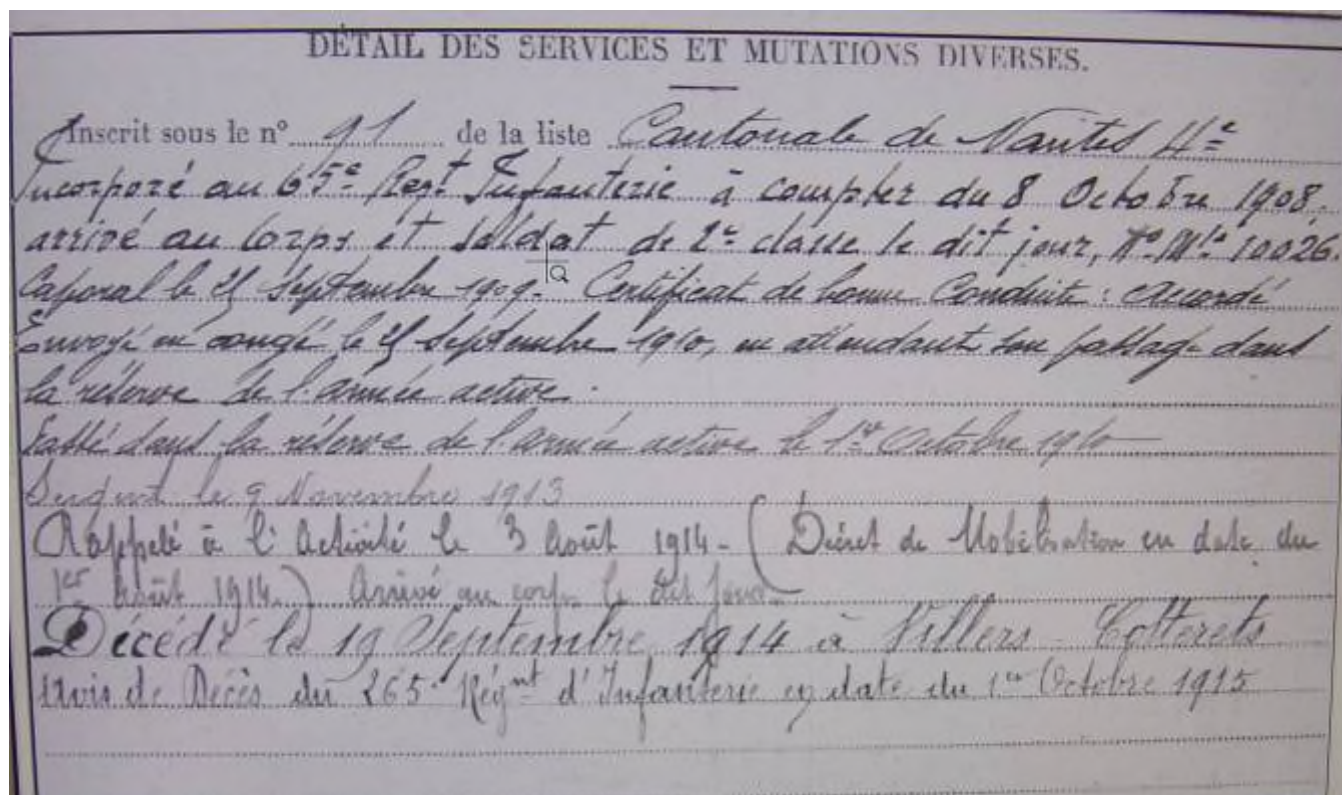 DÉTAIL DES SERVICES ET MUTATIONS DIVERSES.
Inscrit sous le n° 91 de la liste Cantonale de Nantes 4e
Incorporé au 65e Regt Infanterie à compter du 8 Octobre 1908,
arrivé au Corps et soldat de 2e classe le dit jour, No Mle 10026.
Caporal le 25 Septembre 1909. Certificat de bonne Conduite : accordé
Envoyé en congé le 25 Septembre 1910, en attendant son passage dans
la réserve de l'armée active.
Passé dans la réserve de l'armée active le 1er Octobre 1910
Sergent le 9 Novembre 1913
Rappelé à l'Activité le 3 Août 1914 - (Décret de Mobilisation en date du
1er Août 1914.) Arrivé au corps le dit jour -
Décédé le 19 Septembre 1914 à Villers-Cotterets
Avis de Décès du 265e Régmt d'Infanterie en date du 1er Octobre 1915